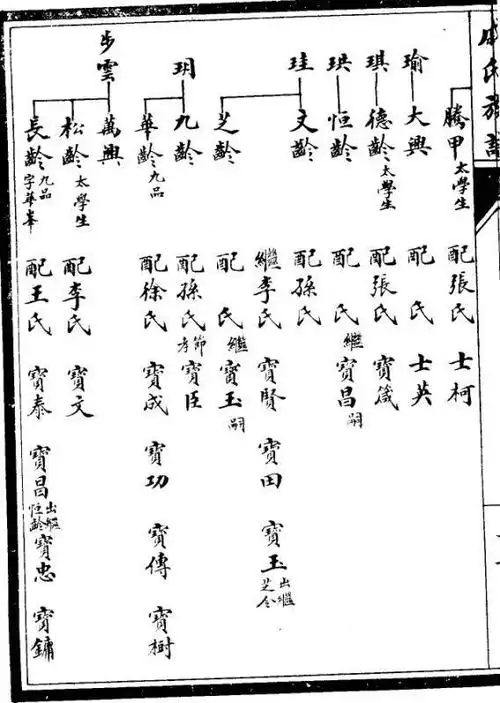 戚氏族譜
騰甲 太學生 配張氏 士柯
瑜 大興 配 氏 士英
琪 德齡 太學生 配張氏 寶箴
珙 恒齡 配 氏 繼 寶昌 嗣
珪 文齡 配孫氏
繼李氏 寶賢 寶田 寶玉 出繼芝令
芝齡 配 氏 繼 寶玉 嗣
玥 九齡 配孫氏 節孝 寶臣
華齡 九品 配徐氏 寶成 寶功 寶傳 寶樹
步雲 萬興
松齡 太學生 配李氏 寶文
長齡 九品 字華峯 配王氏 寶泰 寶昌 出繼恒齡 寶忠 寶鏞